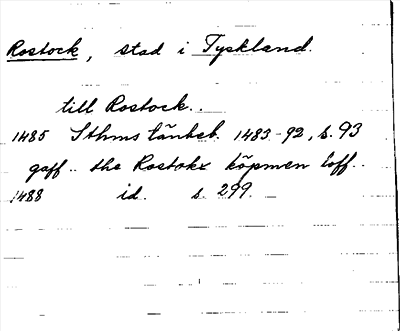 Rostock, stad i Tyskland.
till Rostock..
1485 Sthms tänkeb. 1483-92, s. 93
gaff.. the Rostokx köpmen loff..
1488 id. s. 299.